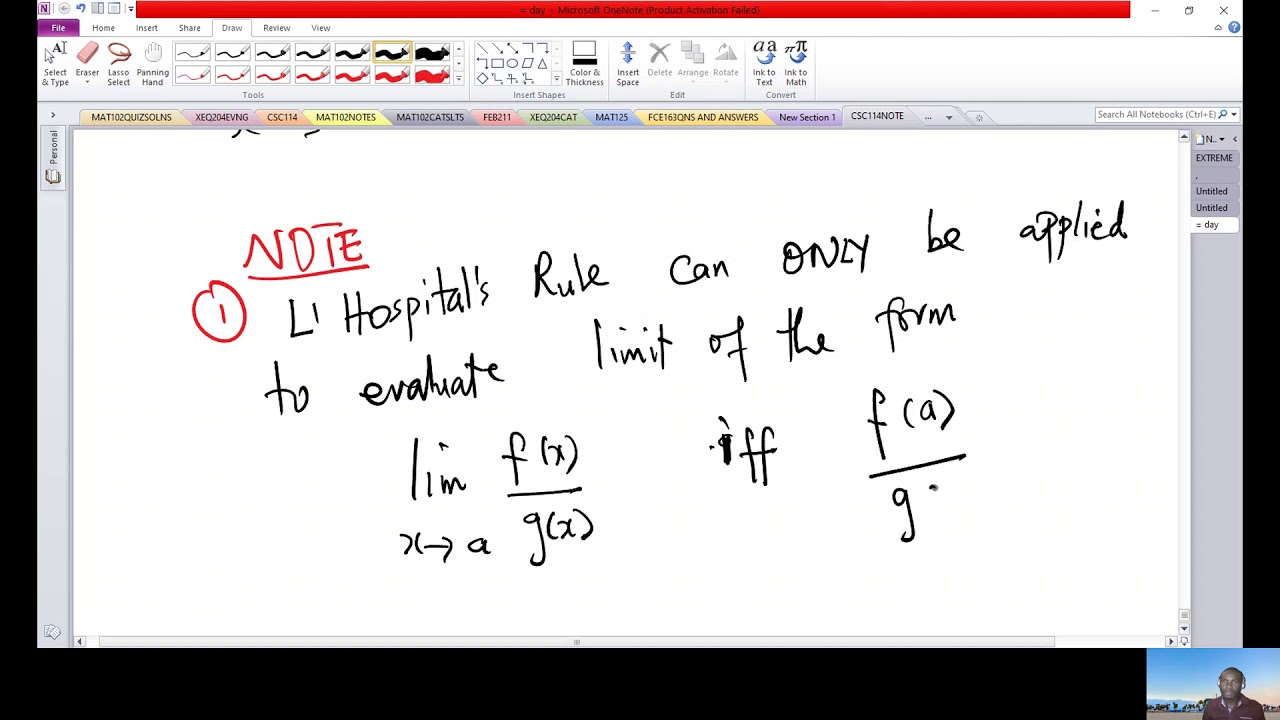 = day - Microsoft OneNote (Product Activation Failed)
File Home Insert Share Draw Review View
Select & Type
Eraser
Lasso Select
Panning Hand
Color & Thickness
Insert Space
Delete
Arrange
Rotate
Ink to Text
Ink to Math
Tools
Insert Shapes
Edit
Convert
MAT102QUIZSOLNS XEQ204EVNG CSC114 MAT102NOTES MAT102CATSLTS FEB211 XEQ204CAT MAT125 FCE163QNS AND ANSWERS New Section 1 CSC114NOTE ...
Search All Notebooks (Ctrl+E)
Personal
N..
EXTREME
,
Untitled
Untitled
= day
NOTE
1 L' Hospital's Rule can ONLY be applied
to evaluate limit of the form
lim f(x) iff f(a)
x→a g(x) g